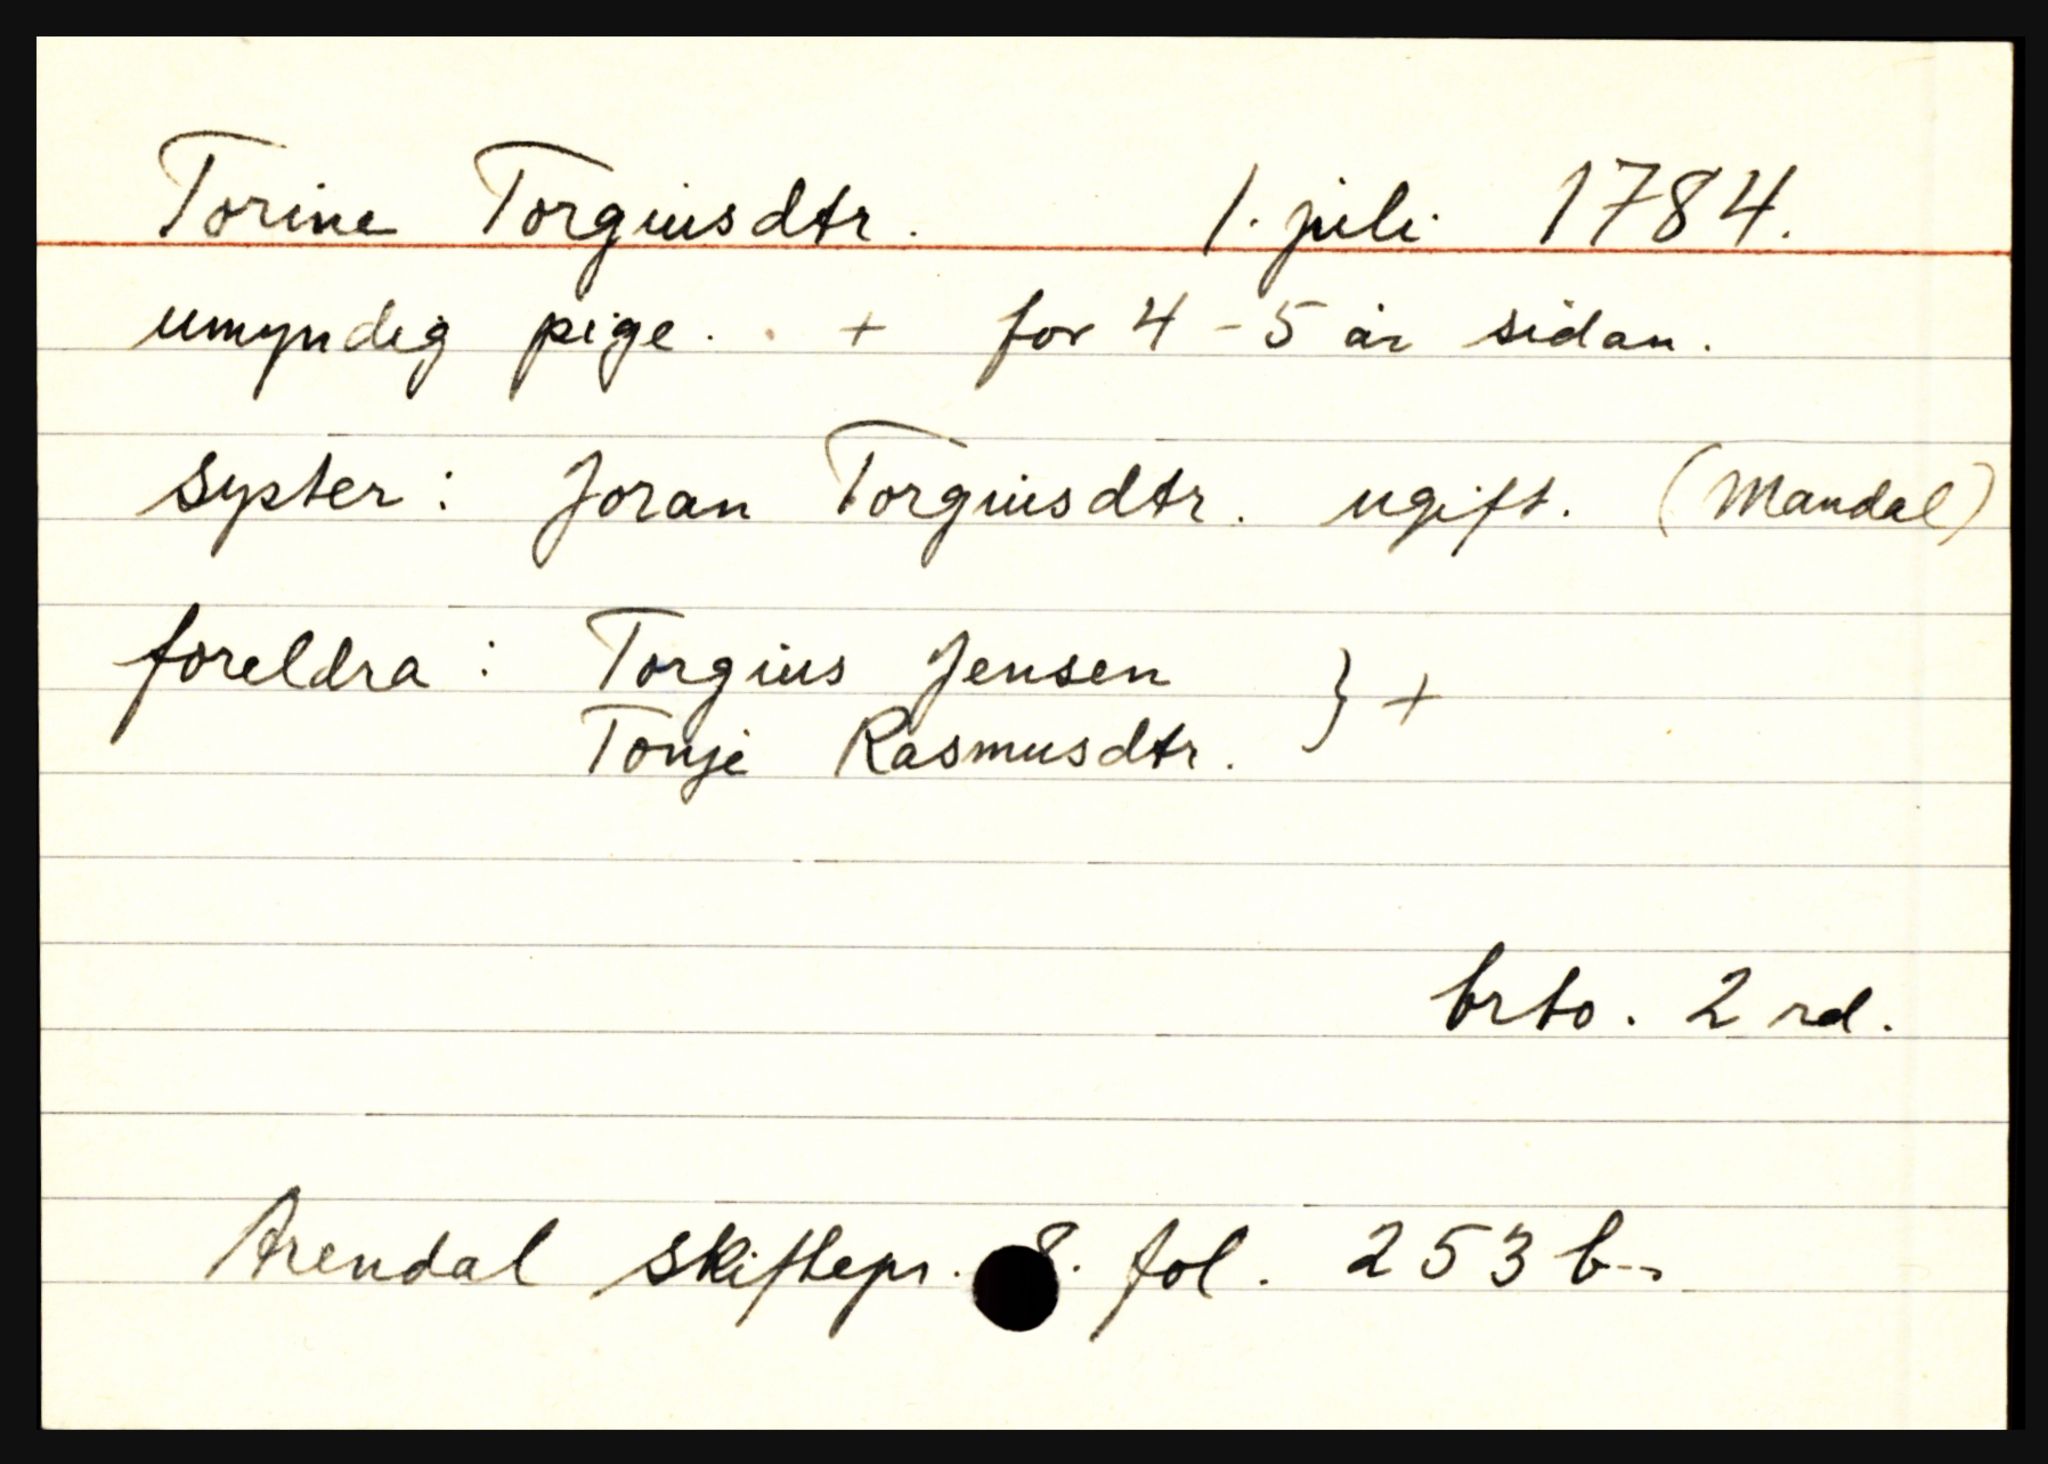 Torine Torgiusdtr. 1. juli 1784.
umyndig pige. + for 4-5 år sidan.
syster: Joran Torgiusdtr. ugift. (Mandal)
foreldra: Torgius Jensen } +
Tonje Rasmusdtr.
brto. 2 rd.
Arendal skiftepr. 8. fol. 253 b